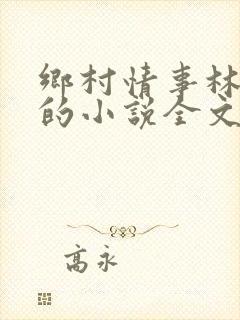 鄉村情事林
的小說全文
高永